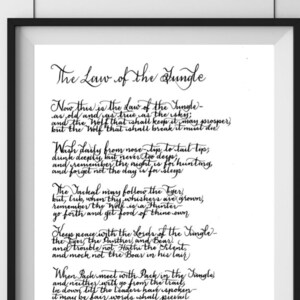 The Law of the Jungle
Now this is the Law of the Jungle-
as old and as true as the sky;
and the Wolf that shall keep it may prosper,
but the Wolf that shall break it must die.
Wash daily from nose-tip to tail-tip;
drink deeply but never too deep;
and remember the night is for hunting,
and forget not the day is for sleep.
The Jackal may follow the Tiger,
but, Cub, when thy whiskers are grown,
remember the Wolf is a Hunter-
go forth and get food of thine own.
Keep peace with the Lords of the Jungle-
the Tiger, the Panther, and Bear.
and trouble not Hathi the Silent,
and mock not the Boar in his lair.
When Pack meet with Pack in the Jungle,
and neither will go from the trail,
lie down till the leaders have spoken-
it may be fair words shall prevail